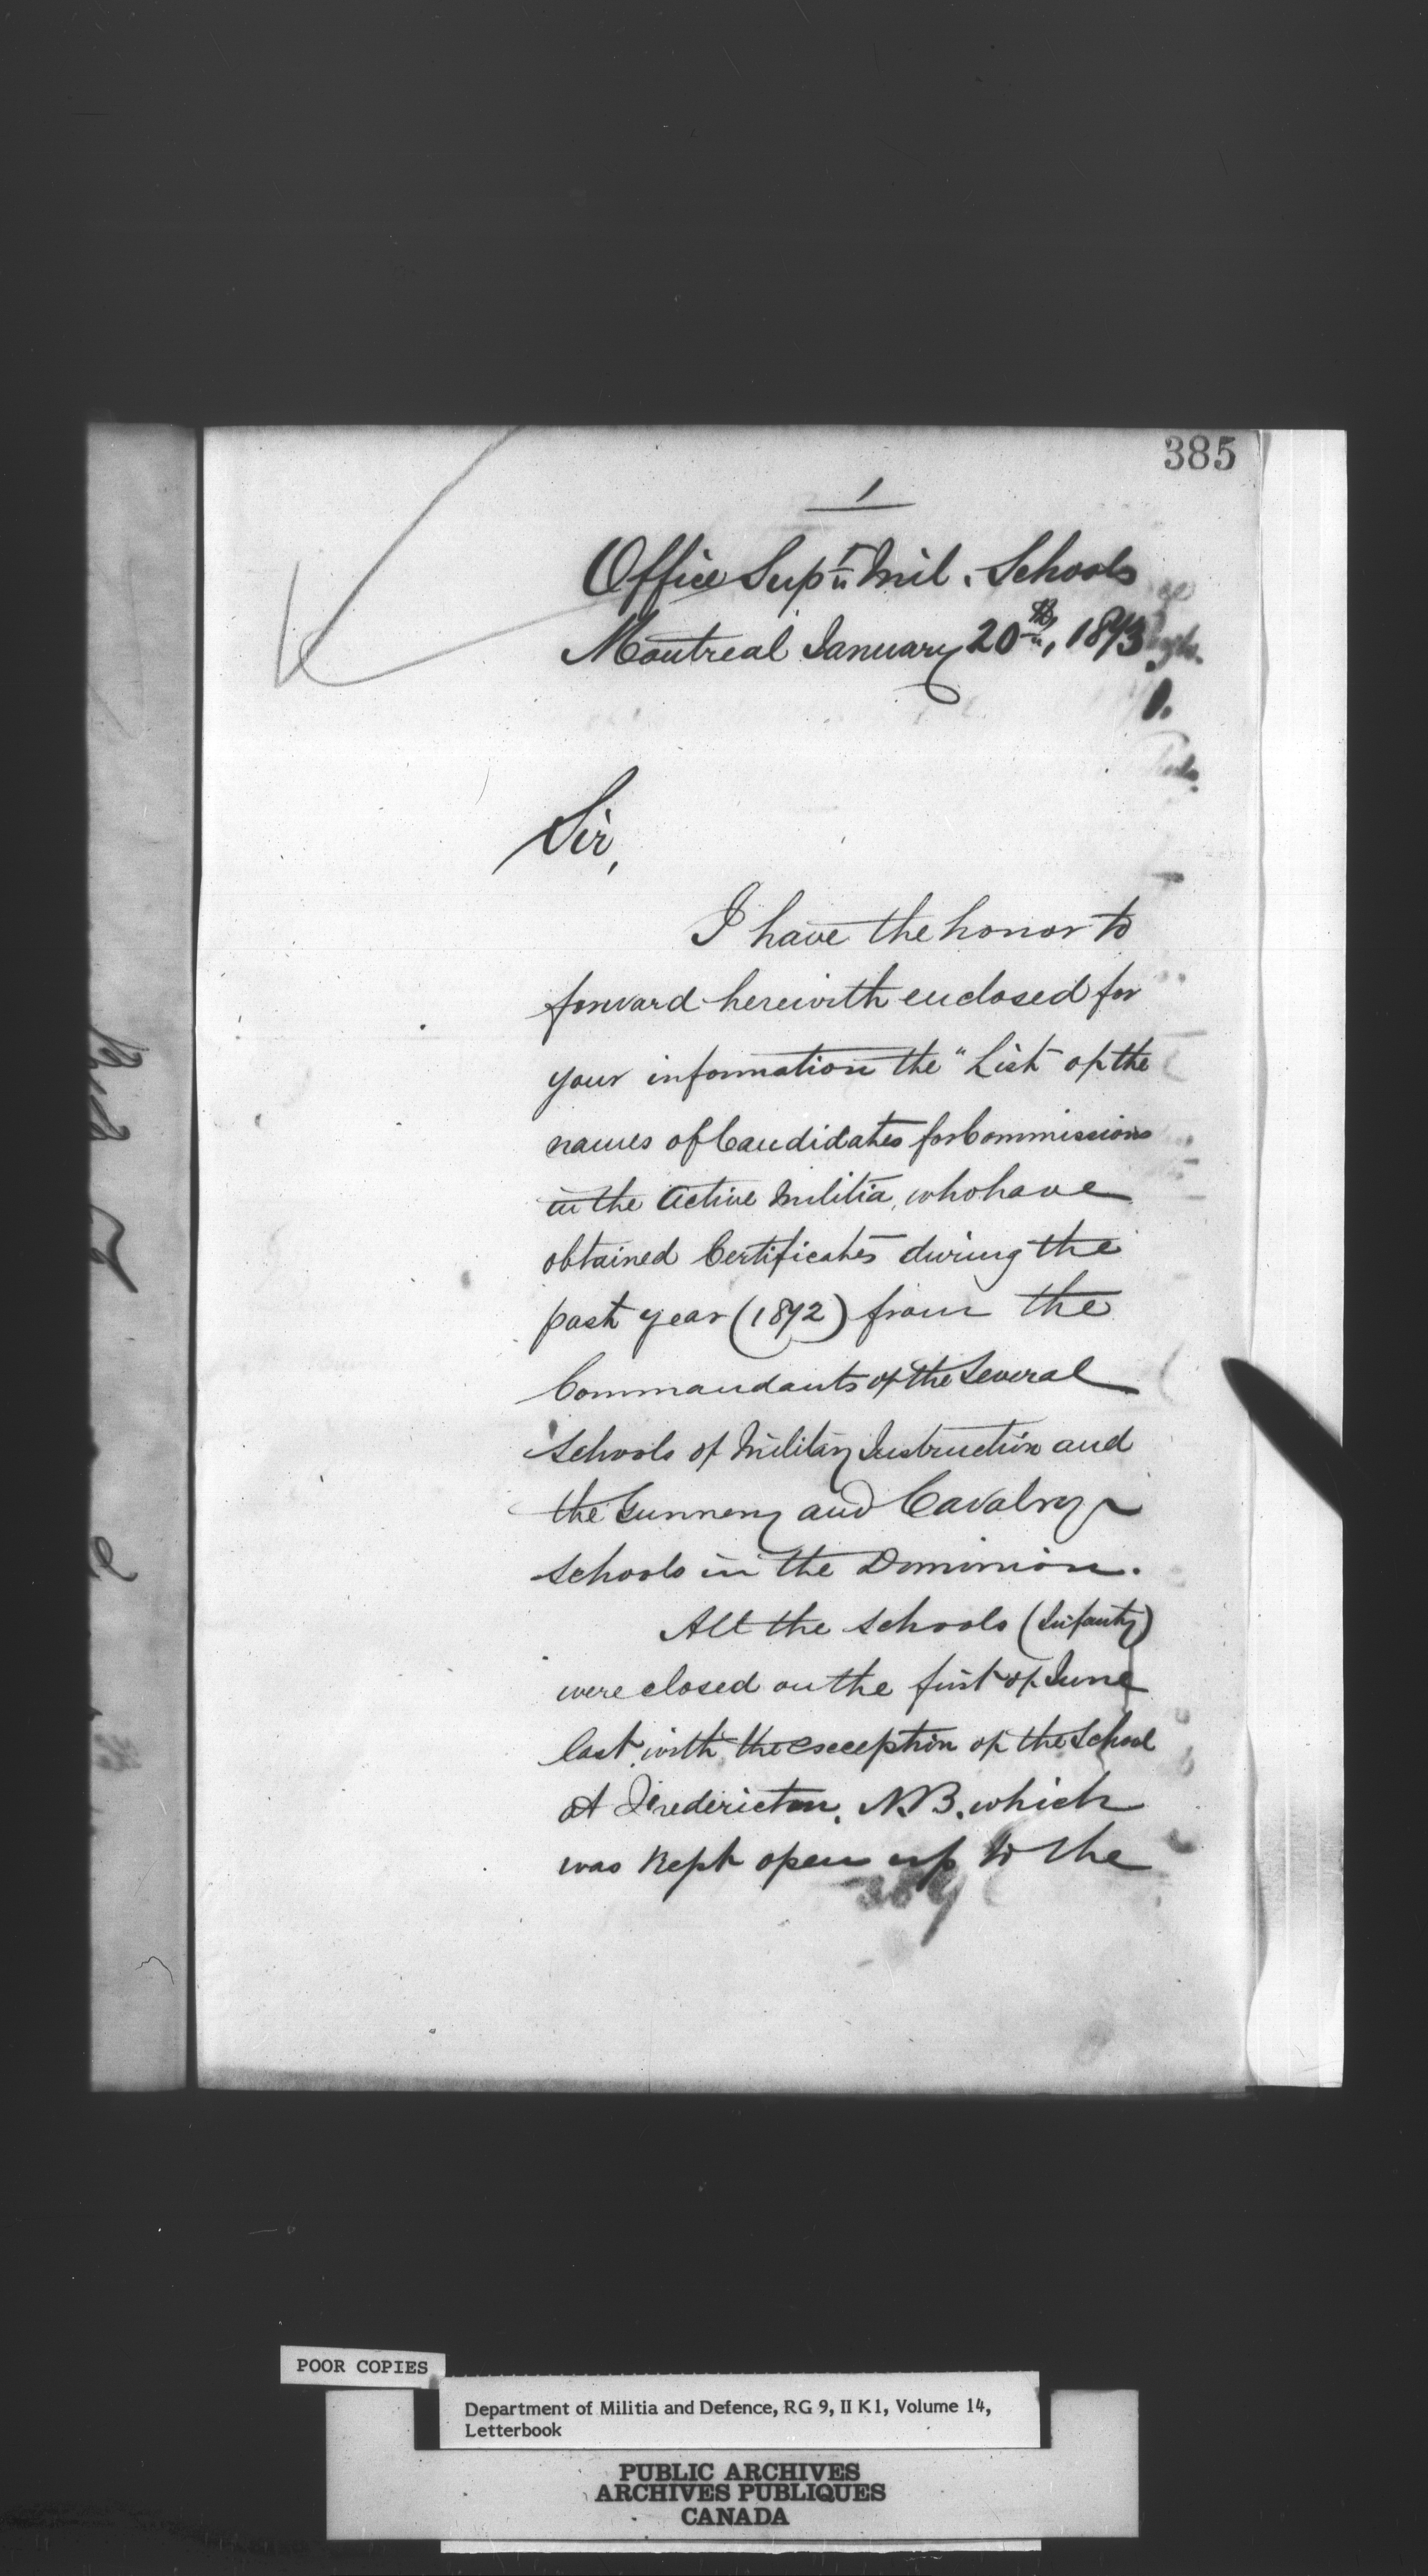 385
1
Office Supt. Mil. Schools
Montreal January 20th, 1873
Sir,
I have the honor to
forward herewith enclosed for
your information the "List of the
names of Candidates for Commissions
in the Active Militia, who have
obtained Certificates during the
past year (1872) from the
Commandants of the Several
Schools of Military Instruction and
the Gunnery and Cavalry
Schools in the Dominion.
All the Schools (Infantry)
were closed on the first of June
last, with the exception of the School
at Fredericton, N.B. which
was kept open up to the
POOR COPIES
Department of Militia and Defence, RG 9, II K1, Volume 14,
Letterbook
PUBLIC ARCHIVES
ARCHIVES PUBLIQUES
CANADA